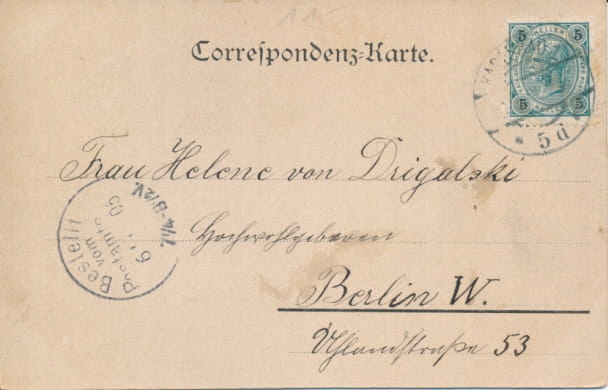 Correspondenz-Karte.
5 HELLER 5
5 5
* 5 d
Frau Helene von Drigalski
Hochwohlgeboren
Berlin W.
Uhlandstraße 53
Bestellt
vom
Postamte
6 05